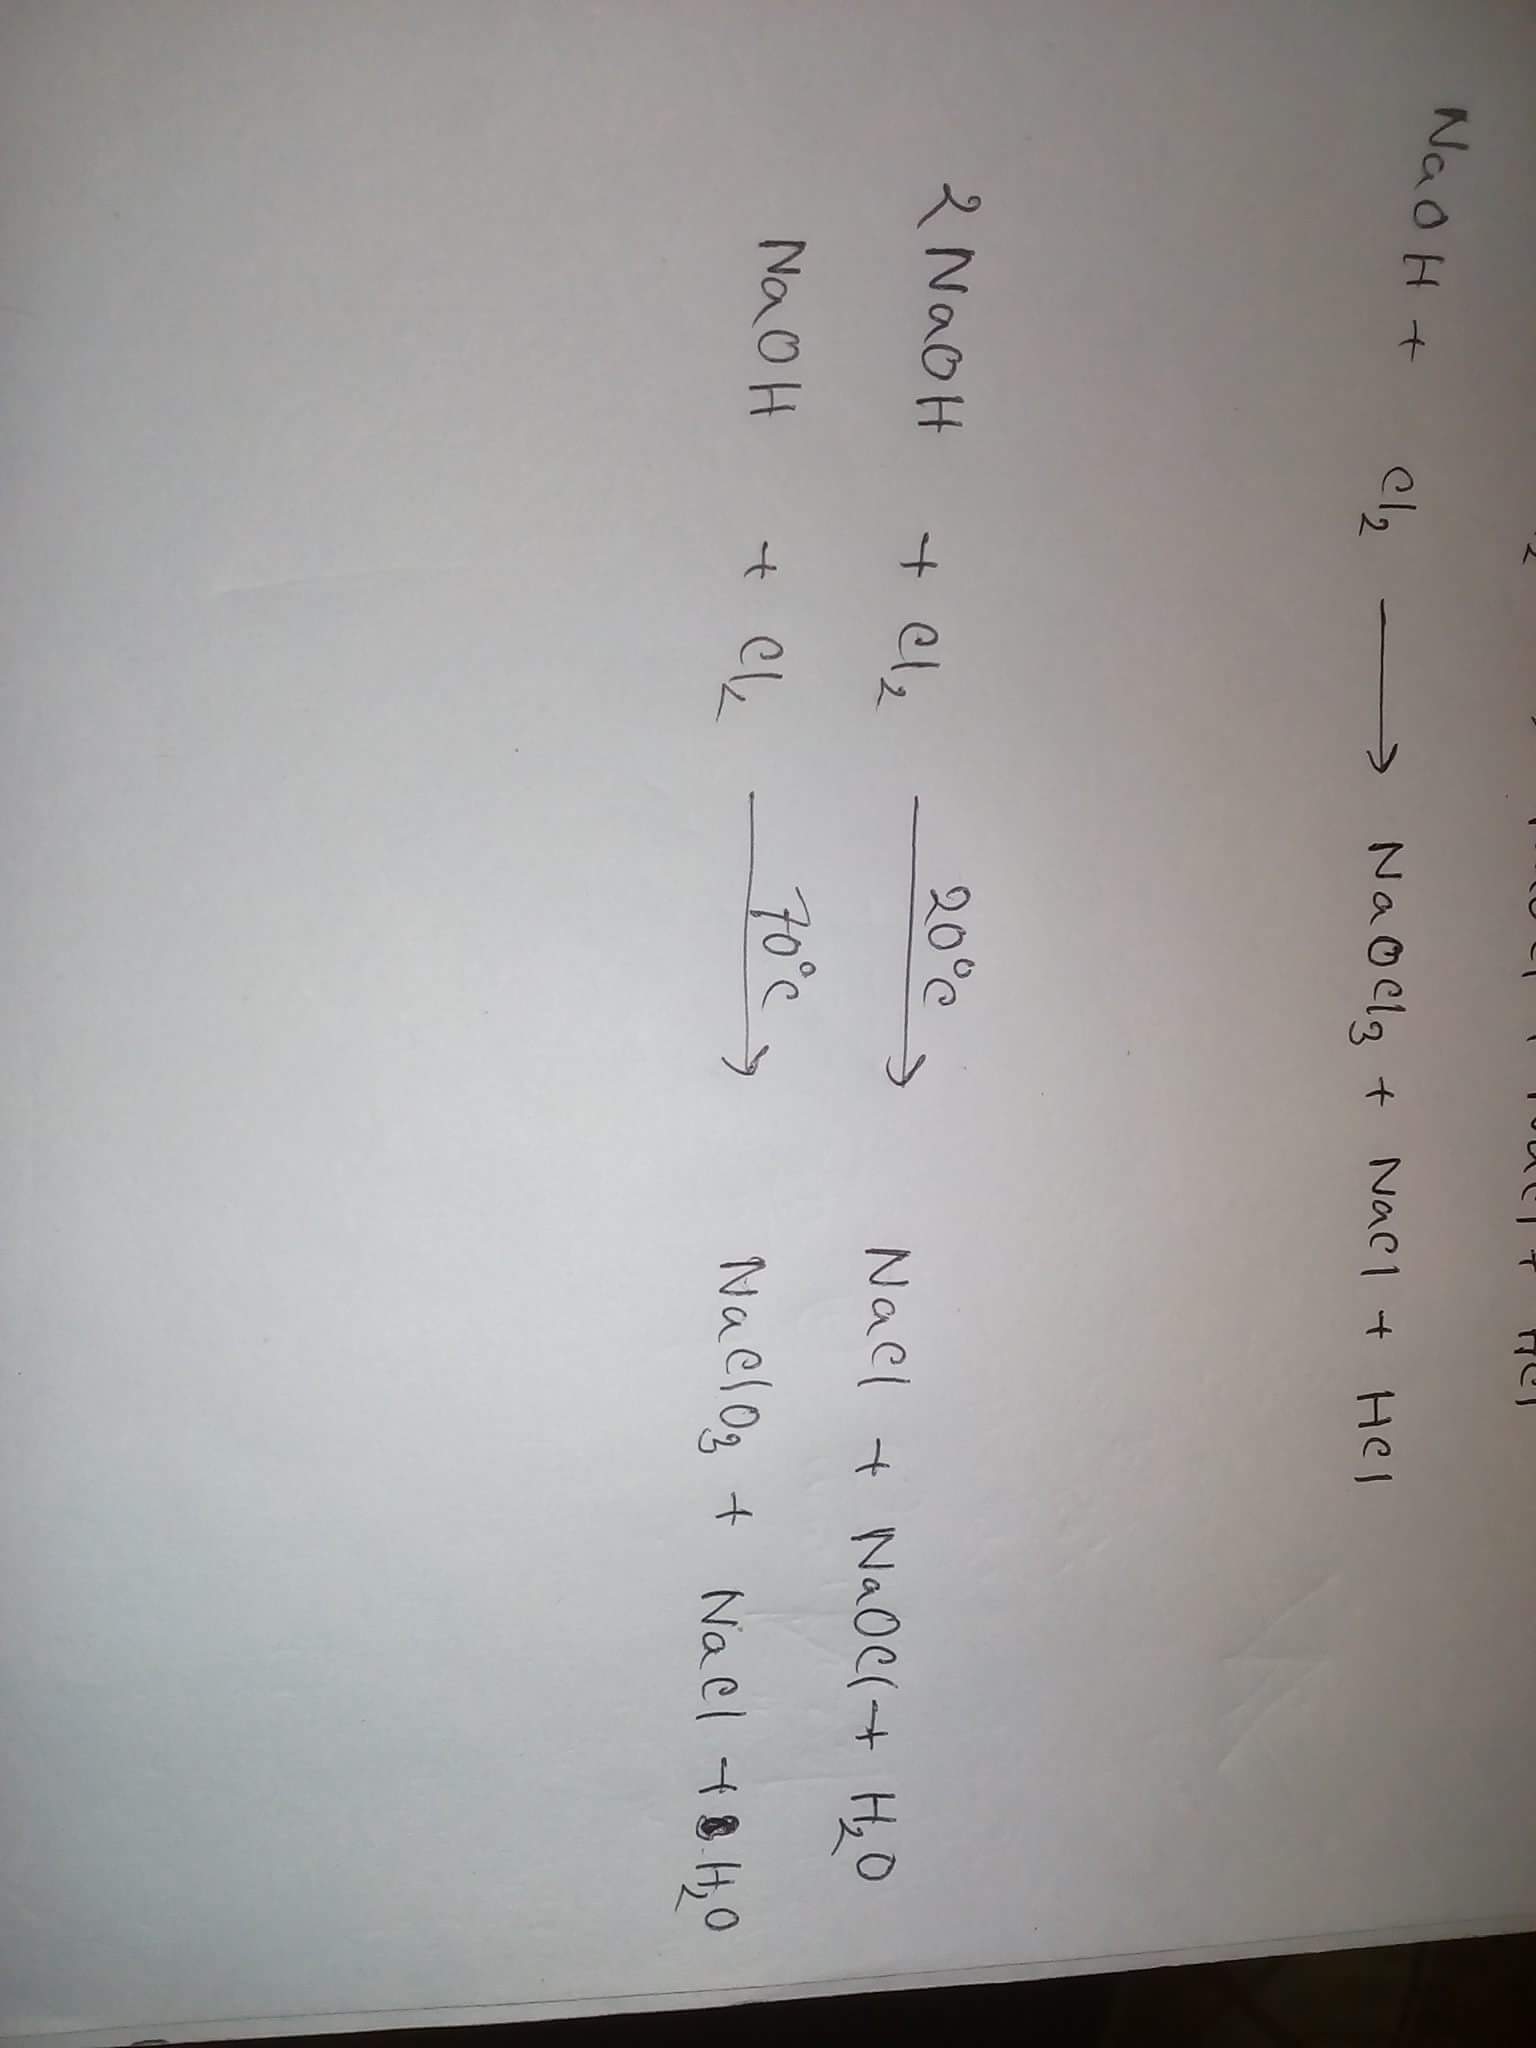 NaOH + Cl₂ → NaOCl₃ + NaCl + HCl
2 NaOH + Cl₂ 20°C → NaCl + NaOCl + H₂O
NaOH + Cl₂ 70°C → NaClO₃ + NaCl + H₂O